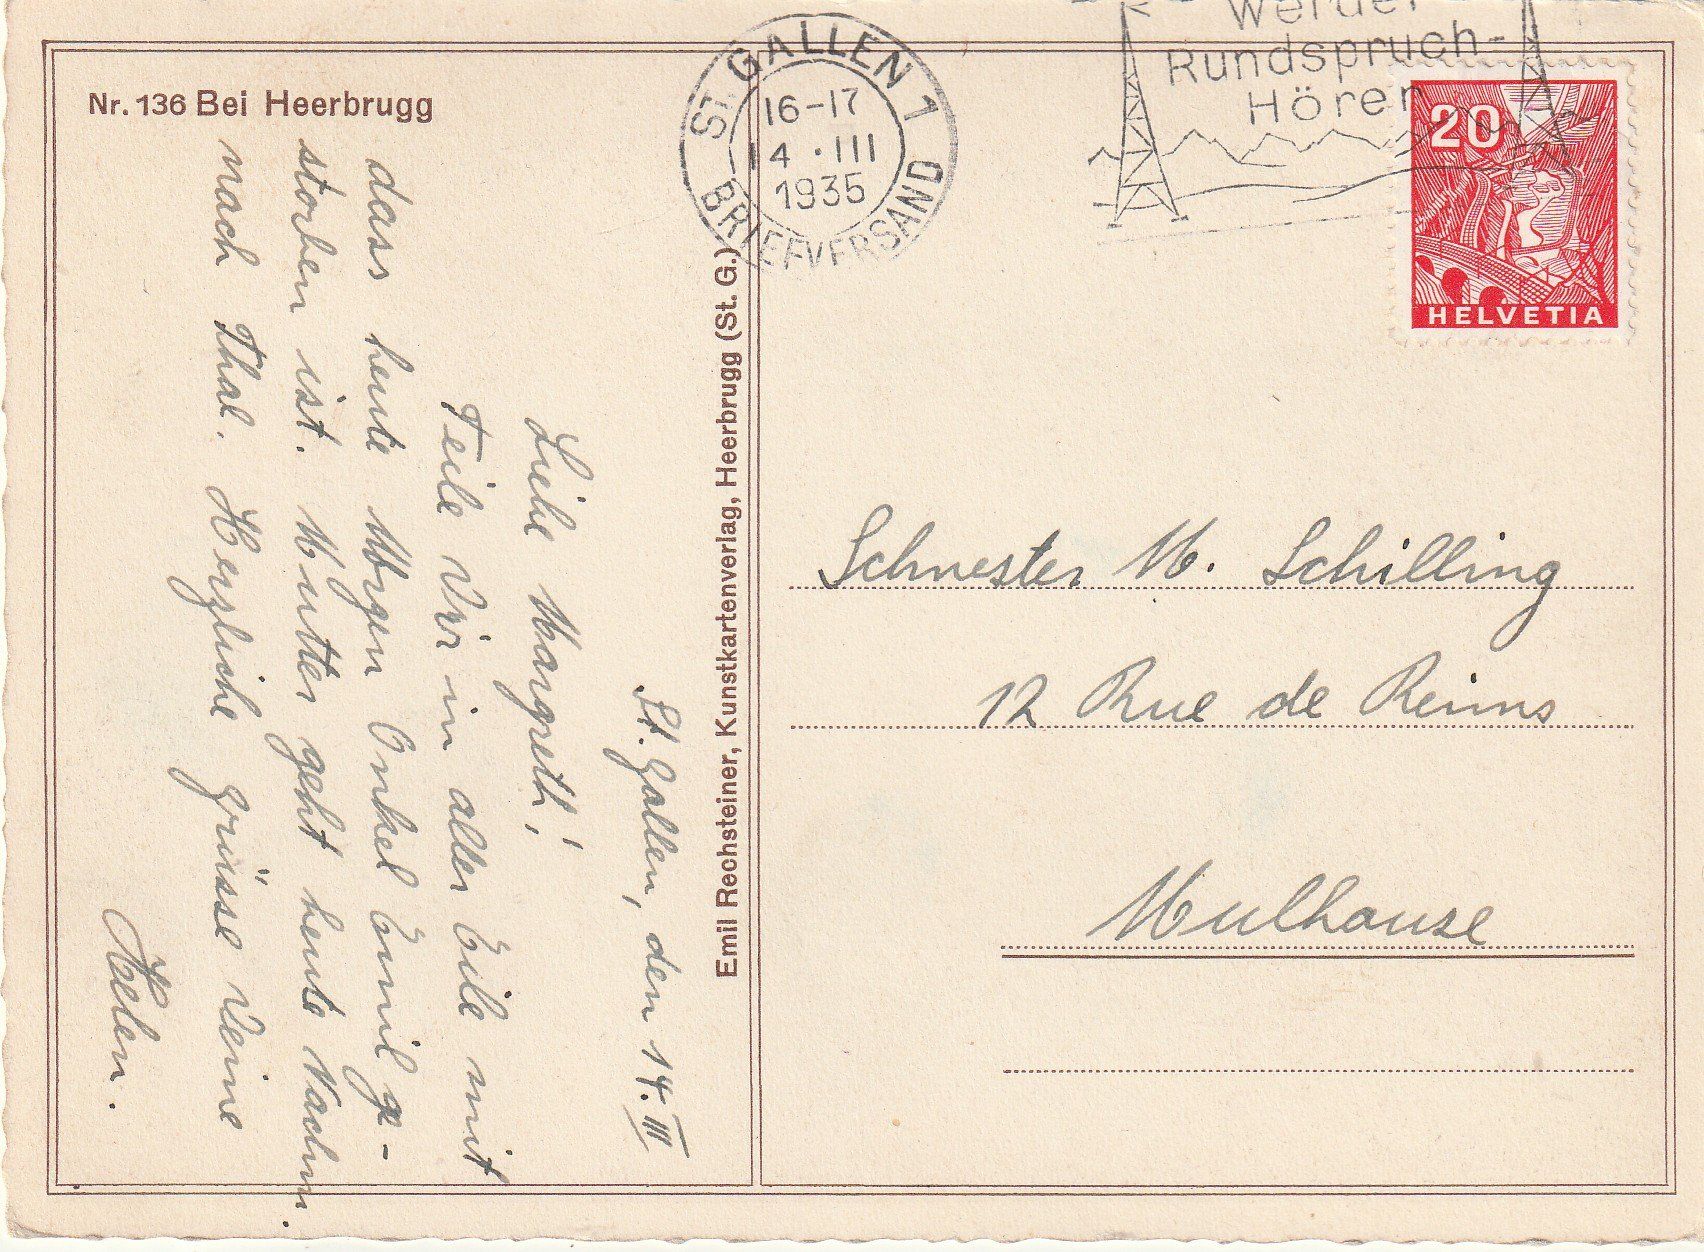 Nr. 136 Bei Heerbrugg
St. Gallen, den 14. III
Liebe Margreth!
Teile Dir in aller Eile mit
dass heute Morgen Onkel Emil ge-
storben ist. Mutter geht heute Nachm.
nach Thal. Herzliche Grüsse Deine
Helen.
Emil Rechsteiner, Kunstkartenverlag, Heerbrugg (St. G.)
ST. GALLEN 1
16-17
14.III
1935
BRIEFVERSAND
Werdet
Rundspruch-
Hörer
20
HELVETIA
Schwester M. Schilling
12 Rue de Reims
Mulhouse